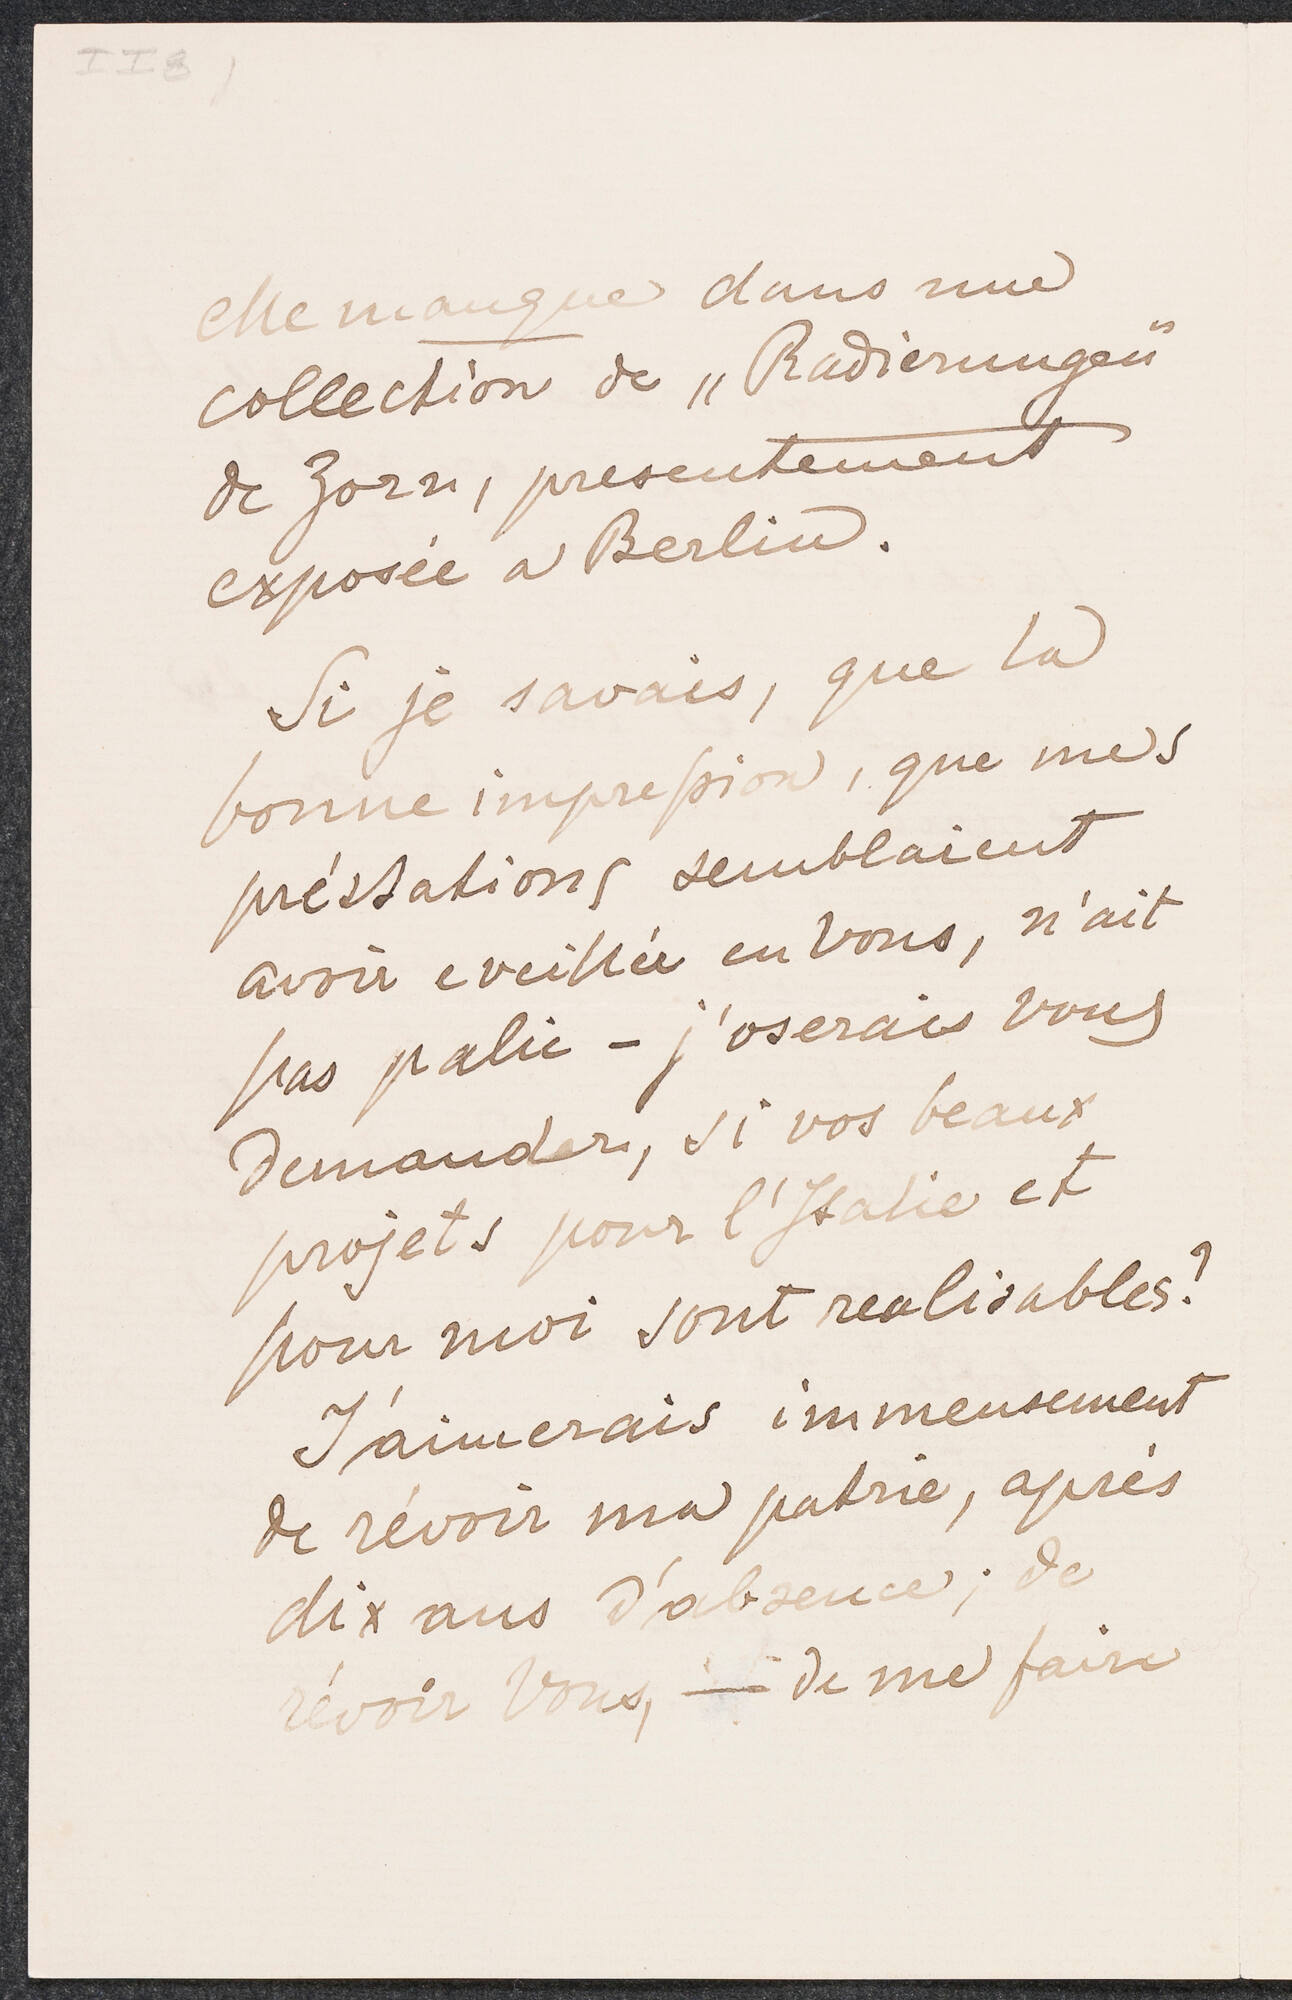 II 8)
elle manque dans une
collection de „Radierungen“
de Zorn, presentement
exposée a Berlin.
Si je savais, que la
bonne impression, que mes
préstations semblaient
avoir eveillée en Vous, n'ait
pas palie – j'oserais Vous
demander, si vos beaux
projets pour l'Italie et
pour moi sont realisables?
J'aimerais immensement
de révoir ma patrie, aprés
dix ans d'absence; de
révoir Vous, — de me faire